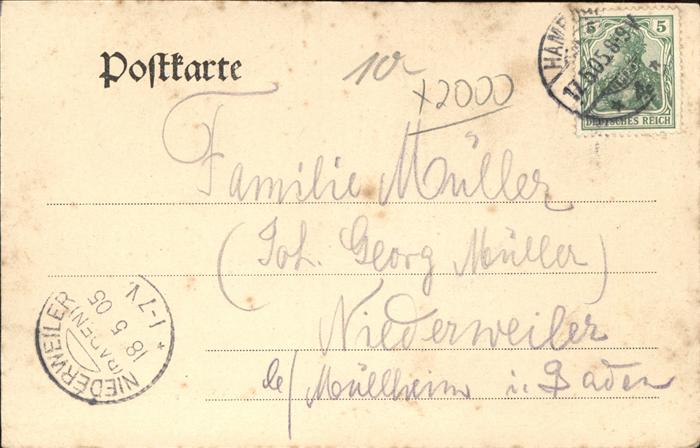 Postkarte
10
x2000
HAMB
17.5.05.8-9
5 5
DEUTSCHES REICH
Familie Müller
(Joh. Georg Müller)
Niederweiler
Müllheim i. Baden
NIEDERWEILER
(BADEN)
18 5 05
1-7 V